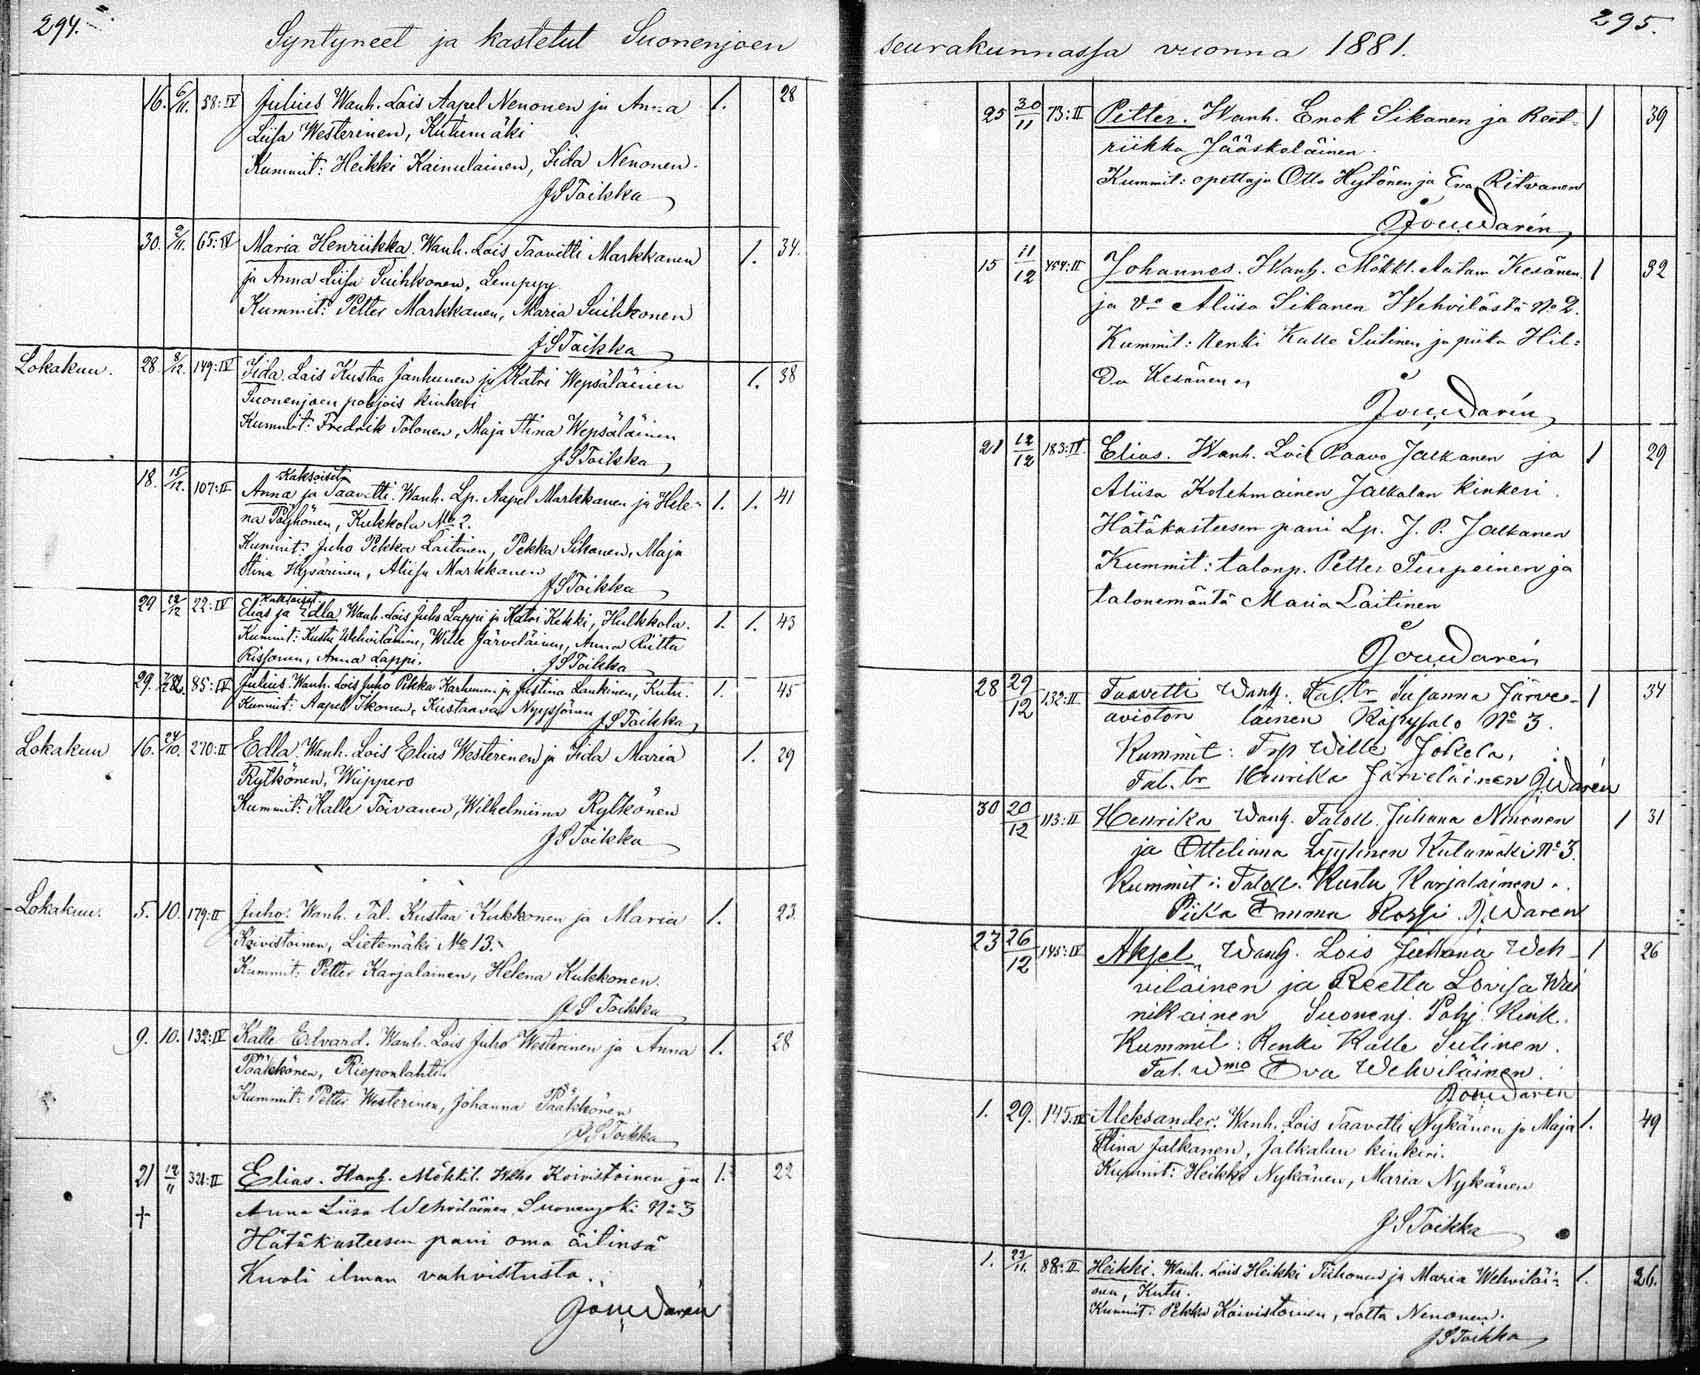 294.
Syntyneet ja kastetut Suonenjoen
16. 6/11. 58:IV Julius Wanh. Lois Aapel Nenonen ja Anna 1. 28
Liisa Westerinen, Kutumäki
Kummit: Heikki Kainulainen, Iida Nenonen.
J S Toikka
30. 9/11. 65:IV Maria Henriikka. Wanh. Lois Taavetti Markkanen 1. 34.
ja Anna Liisa Suihkonen, Lempyy
Kummit: Petter Markkanen, Maria Suihkonen
J S Toikka
Lokakuu. 28. 8/12. 149:IV Iida. Lois Kustaa Janhunen ja Katri Wepsäläinen 1. 38
Suonenjoen pohjois kinkeri
Kummit: Fredrik Tolonen, Maja Stina Wepsäläinen
J S Toikka
Kaksoiset
18. 15/12. 107:II Anna ja Taavetti. Wanh. Lp. Aapel Markkanen ja Hele- 1. 1. 41
na Pöyhönen, Kukkola No 2.
Kummit: Juho Pekka Laitinen, Pekka Sikanen, Maja
Stina Hyvärinen, Aliisa Markkanen
J S Toikka
Kaksoiset
29 22/12 22:IV Elias ja Edla Wanh. Lois Juho Lappi ja Katri Kekki, Hulkkola. 1. 1. 43
Kummit: Kustu Wehviläinen, Wille Järveläinen, Anna Riitta
Rissonen, Anna Lappi. J S Toikka
29. 85:IV Julius. Wanh. Lois Juho Pekka Karhunen ja Justina Laukinen, Kutu. 1. 45
Kummit: Aapel Ikonen, Kustaava Nyyssönen J S Toikka
Lokakuu 16. 24/10. 270:II Edla. Wanh. Lois Elias Westerinen ja Iida Maria 1. 29
Rytkönen, Wiippero
Kummit: Kalle Toivanen, Wilhelmiina Rytkönen
J S Toikka
Lokakuu. 5. 10. 179:II Juho. Wanh. Tal. Kustaa Kukkonen ja Maria 1. 23.
Koivistoinen, Lietemäki No 13.
Kummit: Petter Karjalainen, Helena Kukkonen.
J S Toikka
9. 10. 132:IV Kalle Edvard. Wanh. Lois Juho Westerinen ja Anna 1. 28
Pääkkönen, Rieponlahti.
Kummit: Petter Westerinen, Johanna Pääkkönen
J S Toikka
21 12/11 321:II Elias. Wanh. Mökkil. Koivistoinen ja 1. 22
† Anna Liisa Wehviläinen Suonenjoki No 3
Hätäkasteesen pani oma äitinsä
Kuoli ilman vahvistusta.
Joh. Warén
295.
seurakunnassa vuonna 1881.
25 30/11 73:II Petter. Wanh. Enok Sikanen ja Reet- 1 39
riikka Jääskeläinen.
Kummit: opettaja Otto Hytönen ja Eva Ritvanen
Joh. Warén
15 11/12 454:II Johannes. Wanh. Mökkl. Aatam Kesänen 1 32
ja Vo Aliisa Sikanen Wehvilästä No 2.
Kummit: Renki Kalle Sutinen ja piika Hil-
da Kesänen
Joh. Warén
21 12/12 183:IV Elias. Wanh. Lois Paavo Jalkanen ja 1 29
Aliisa Kolehmainen Jalkalan kinkeri.
Hätäkasteesen pani Lp. J. P. Jalkanen
Kummit: talonp. Petter Turpeinen ja
talonemäntä Maria Laitinen
Joh. Warén
28 29/12 132:II Taavetti Wanh. Tal. tr Susanna Järve- 1 34
avioton läinen Käpysalo No 3.
Kummit: Tsp Wille Jokela,
Tal. tr Henrika Järveläinen J. Warén
30 20/12 113:II Henrika Wanh. Taloll. Juhana Ninonen 1 31
ja Otteliana Lyytinen Kutumäki No 3.
Kummit: Taloll. Kustu Karjalainen.
Piika Emma Rossi. J. Waren
23 26/12 145:IV Aksel Wanh. Lois Juhana Weh- 1 26
viläinen ja Reetta Lovisa Wäi
nikäinen Suonenj. Pohj. Kink.
Kummit: Renki Kalle Sutinen.
Tal. Wmo Eva Wehviläinen.
Joh. Waren
1. 29. 145.IV Aleksander. Wanh. Lois Taavetti Nykänen ja Maja 1. 49
Stina Jalkanen, Jalkalan kinkeri.
Kummit: Heikki Nykänen, Maria Nykänen
J S Toikka
1. 22/11. 88:II Heikki. Wanh. Lois Heikki Tiihonen ja Maria Wehviläi- 1. 26.
nen, Kutu.
Kummit: Pekka Koivistoinen, Lotta Nenonen.
J S Toikka